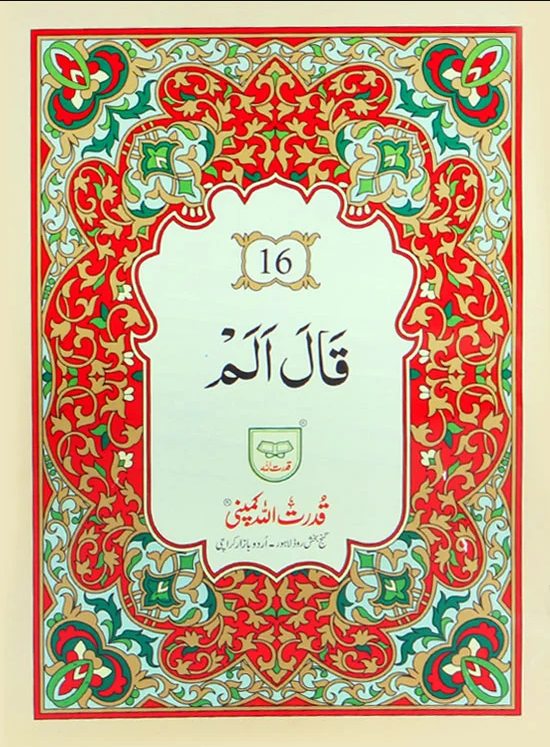 16
قَالَ اَلَمْ
قدرت اللہ
®
قُدرت اللہ کمپنی ®
گنج بخش روڈ لاہور - اُردو بازار کراچی